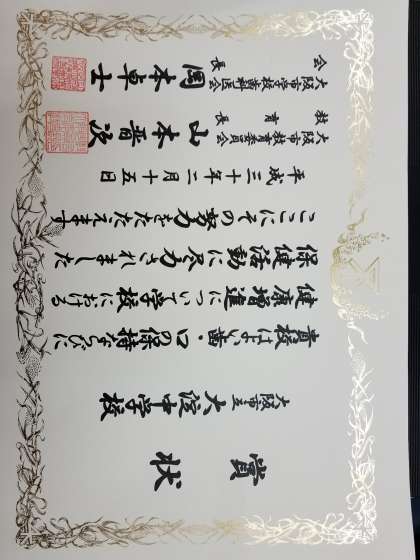 賞状
大阪市立大淀中学校
貴校はよい歯・口の保持ならびに
健康増進について学校における
保健活動に尽力されました
ここにその努力をたたえます
平成三十年二月十五日
大阪市教育委員会
教育長 山本晋次
大阪市学校歯科医会
会長 岡本卓士